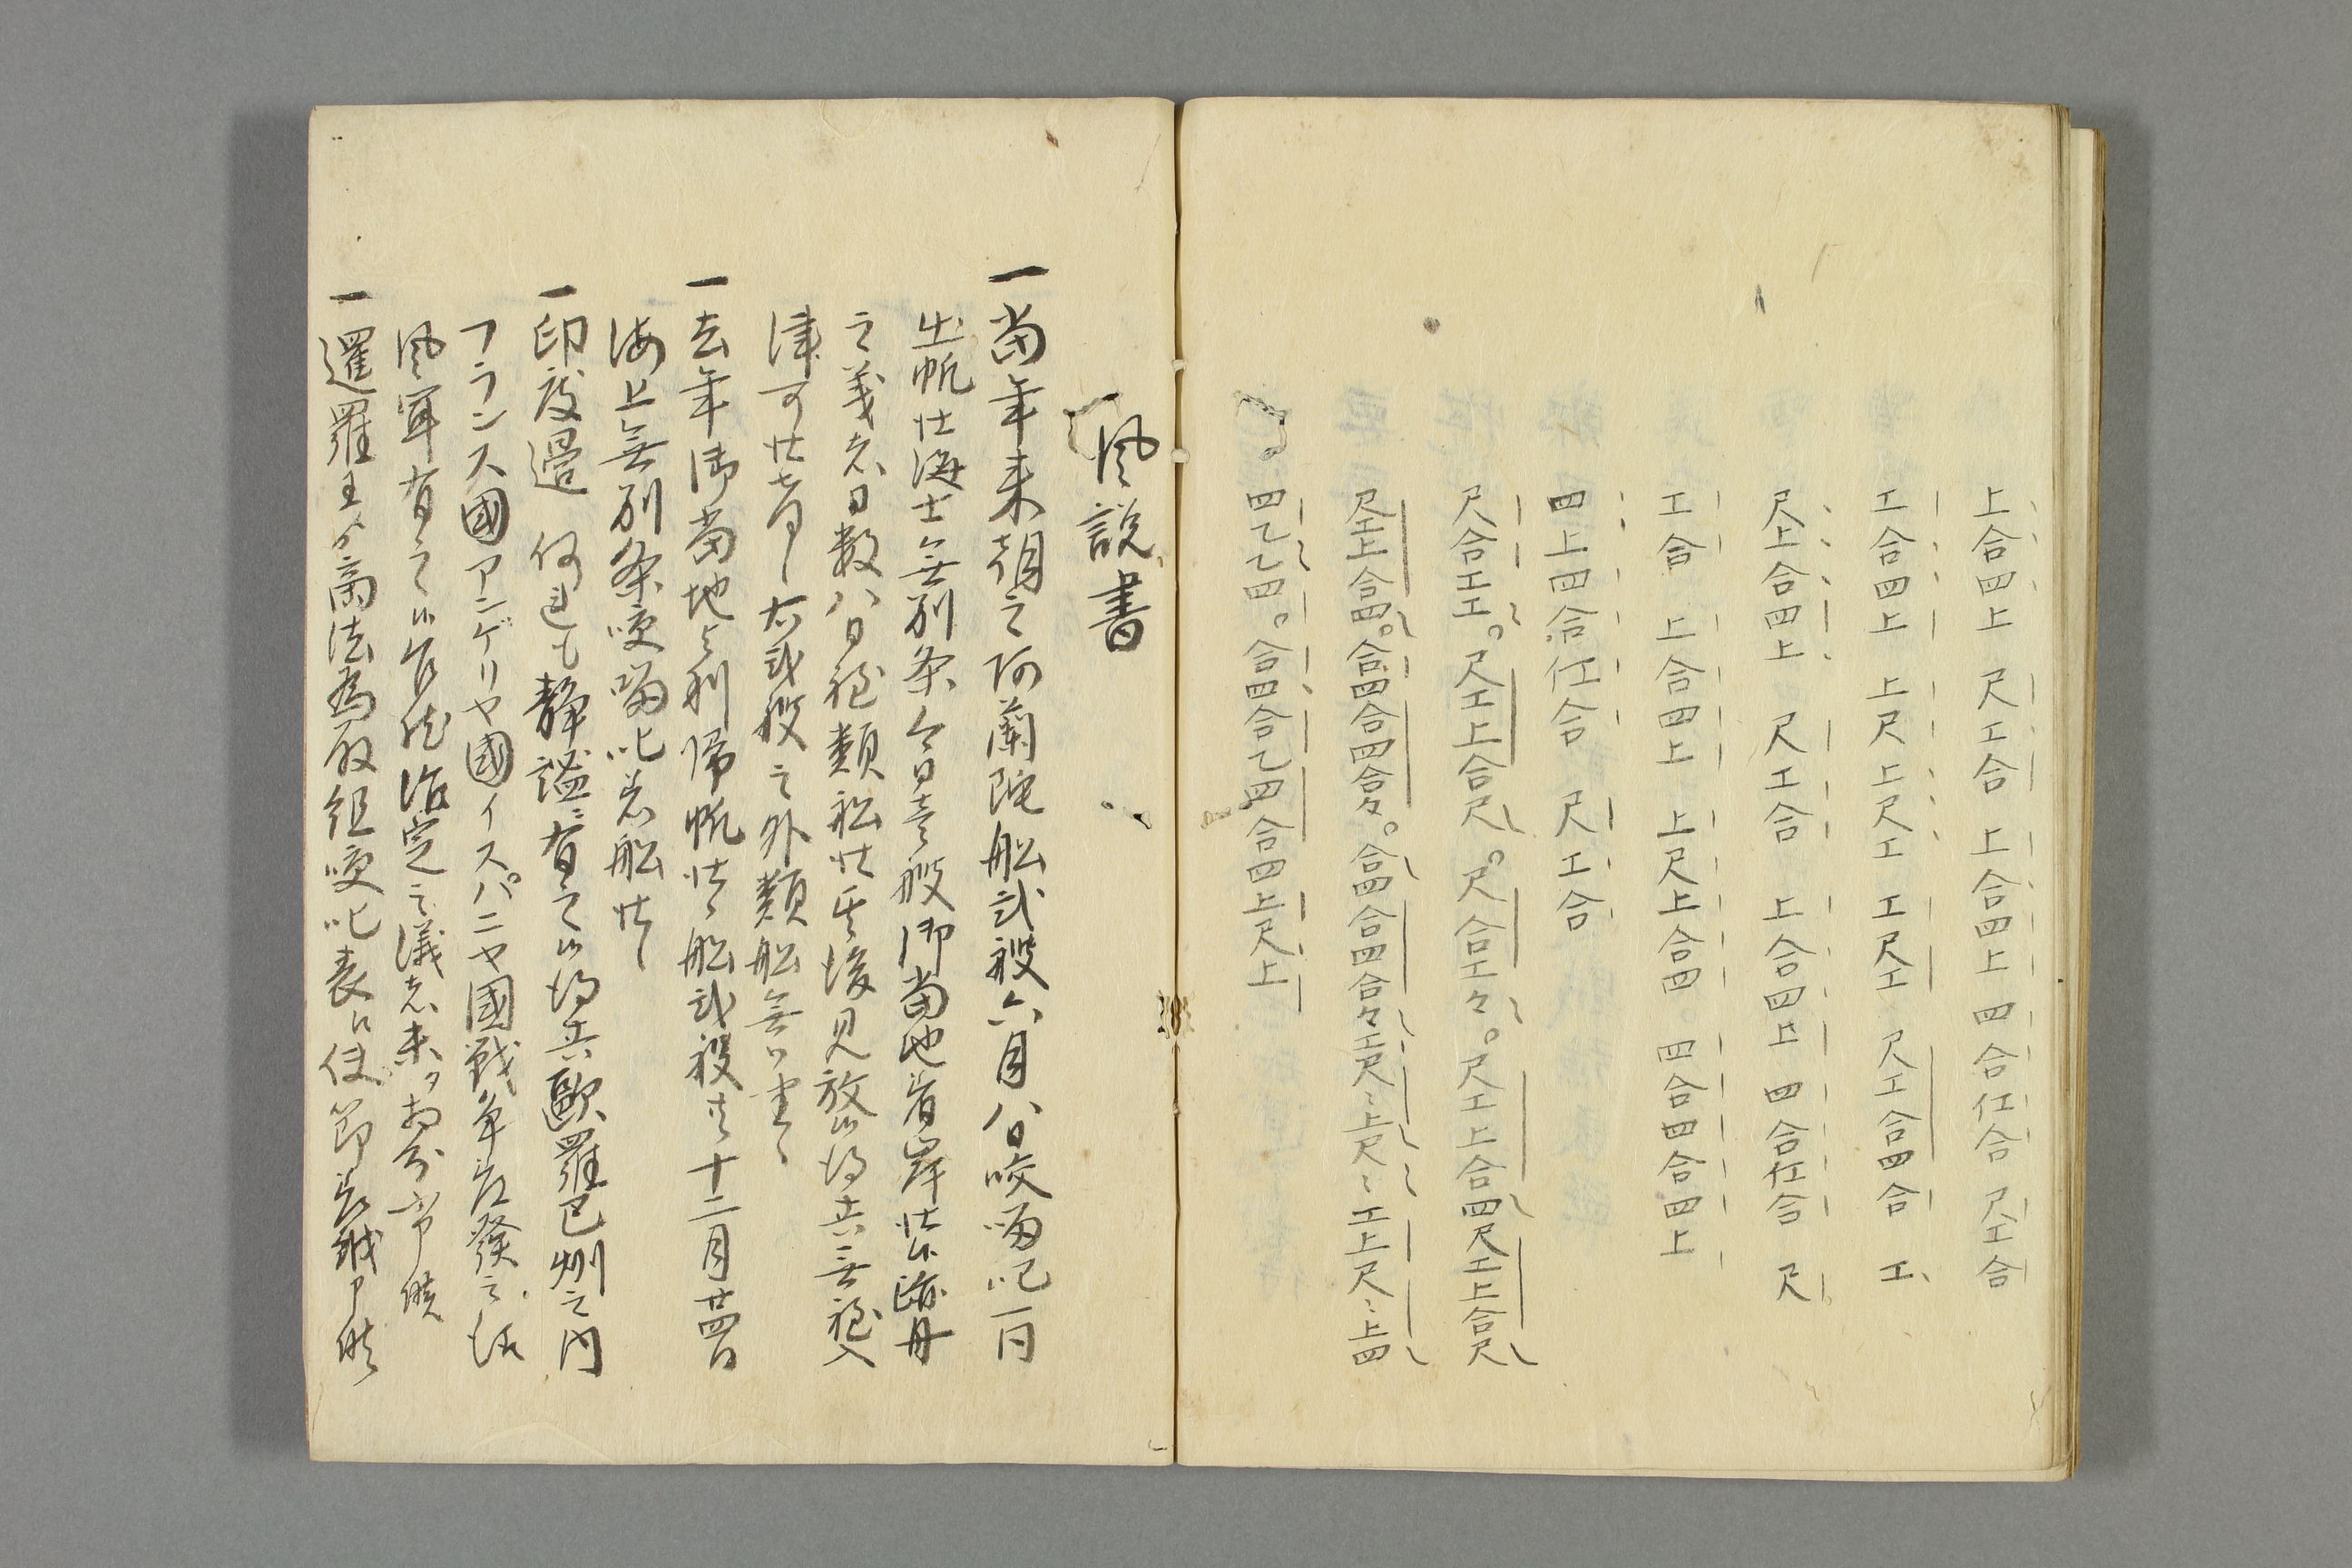 上合四上 尺工合 上合四上 四合仩合 尺工合
工合四上 上尺上尺工 工尺工 尺工合四合 工
尺上合四上 尺工合 上合四上 四合仩合 尺
工合 上合四上 上尺上合四 四合四合四上
四上四合仩合 尺工合
尺合工工。尺工上合尺。尺合工々。尺工上合四尺工上合尺
尺工上合四。合四合四合々。合四合四合々工尺〻上尺〻工上尺〻上四
四乙乙四。合四合乙四合四上尺上
風説書
一當年来朝之阿蘭陀船弐艘六月八日咬𠺕吧一同
出帆仕海上無別条今日壱艘御當地着岸仕候
之義者日数八日程類船仕其後見放候得共無程入
津可仕奉存候右弐艘之外類船無御座候
一去年御當地ゟ致帰帆候船弐艘共十二月廿四日
海上無別条咬𠺕吧着船仕候
一印度邊何連も静謐ニ有之候得共歐羅巴洲之内
フランス國アンゲリヤ國イスパニヤ國戦争差發之
風聞有之候 治定之儀者未タ相分不申候
一暹羅王ゟ商法為取組咬𠺕吧表江使節差越申候